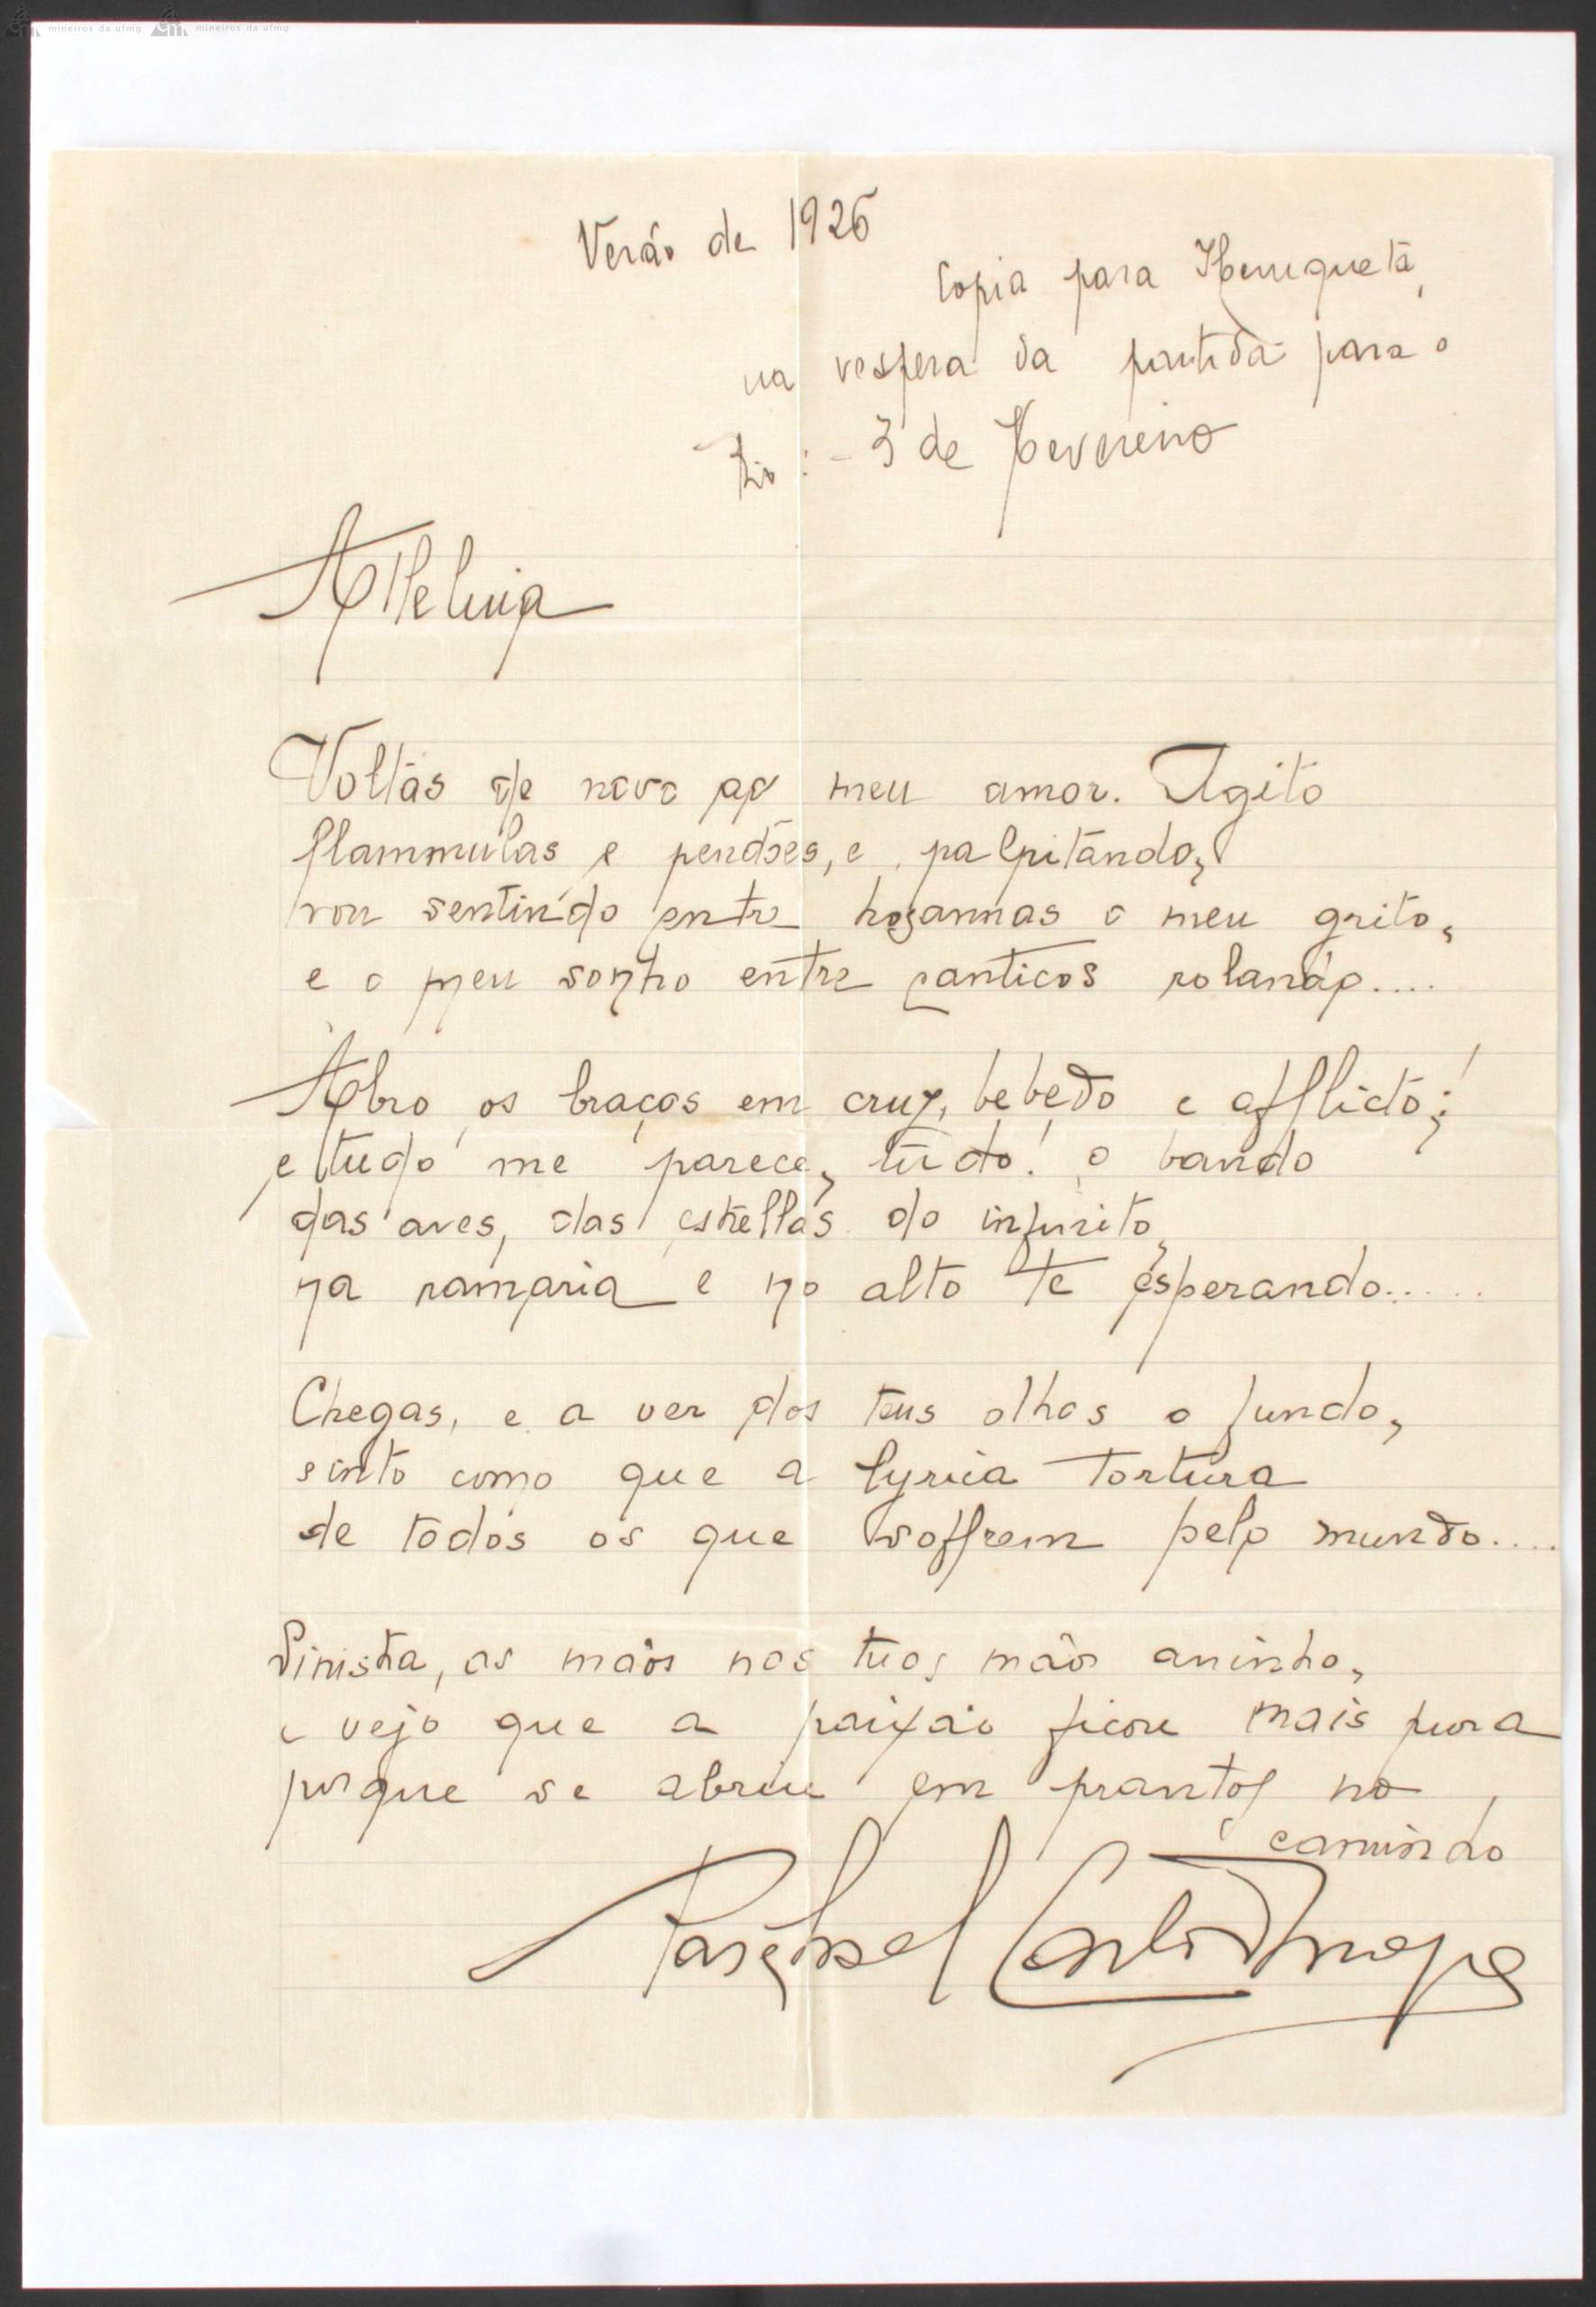 mineiros da ufmg mineiros da ufmg
Verão de 1926
Copia para Henriqueta,
na vespera da partida para o
Rio : - 3 de Fevereiro
Alleluia
Voltas de novo ao meu amor. Agito
flammulas e pendões, e, palpitando,
vou sentindo entre hosannas o meu grito,
e o meu sonho entre canticos rolando....
Abro os braços em cruz, bebedo e afflicto;
e tudo me parece, tudo! o bando
das aves, das estrellas do infinito,
na ramaria e no alto te esperando......
Chegas, e a ver dos teus olhos o fundo,
sinto como que a lyrica tortura
de todos os que soffrem pelo mundo....
Sinistra, as mãos nas tuas mãos aninho,
e vejo que a paixão ficou mais pura
porque se abriu em prantos no
caminho